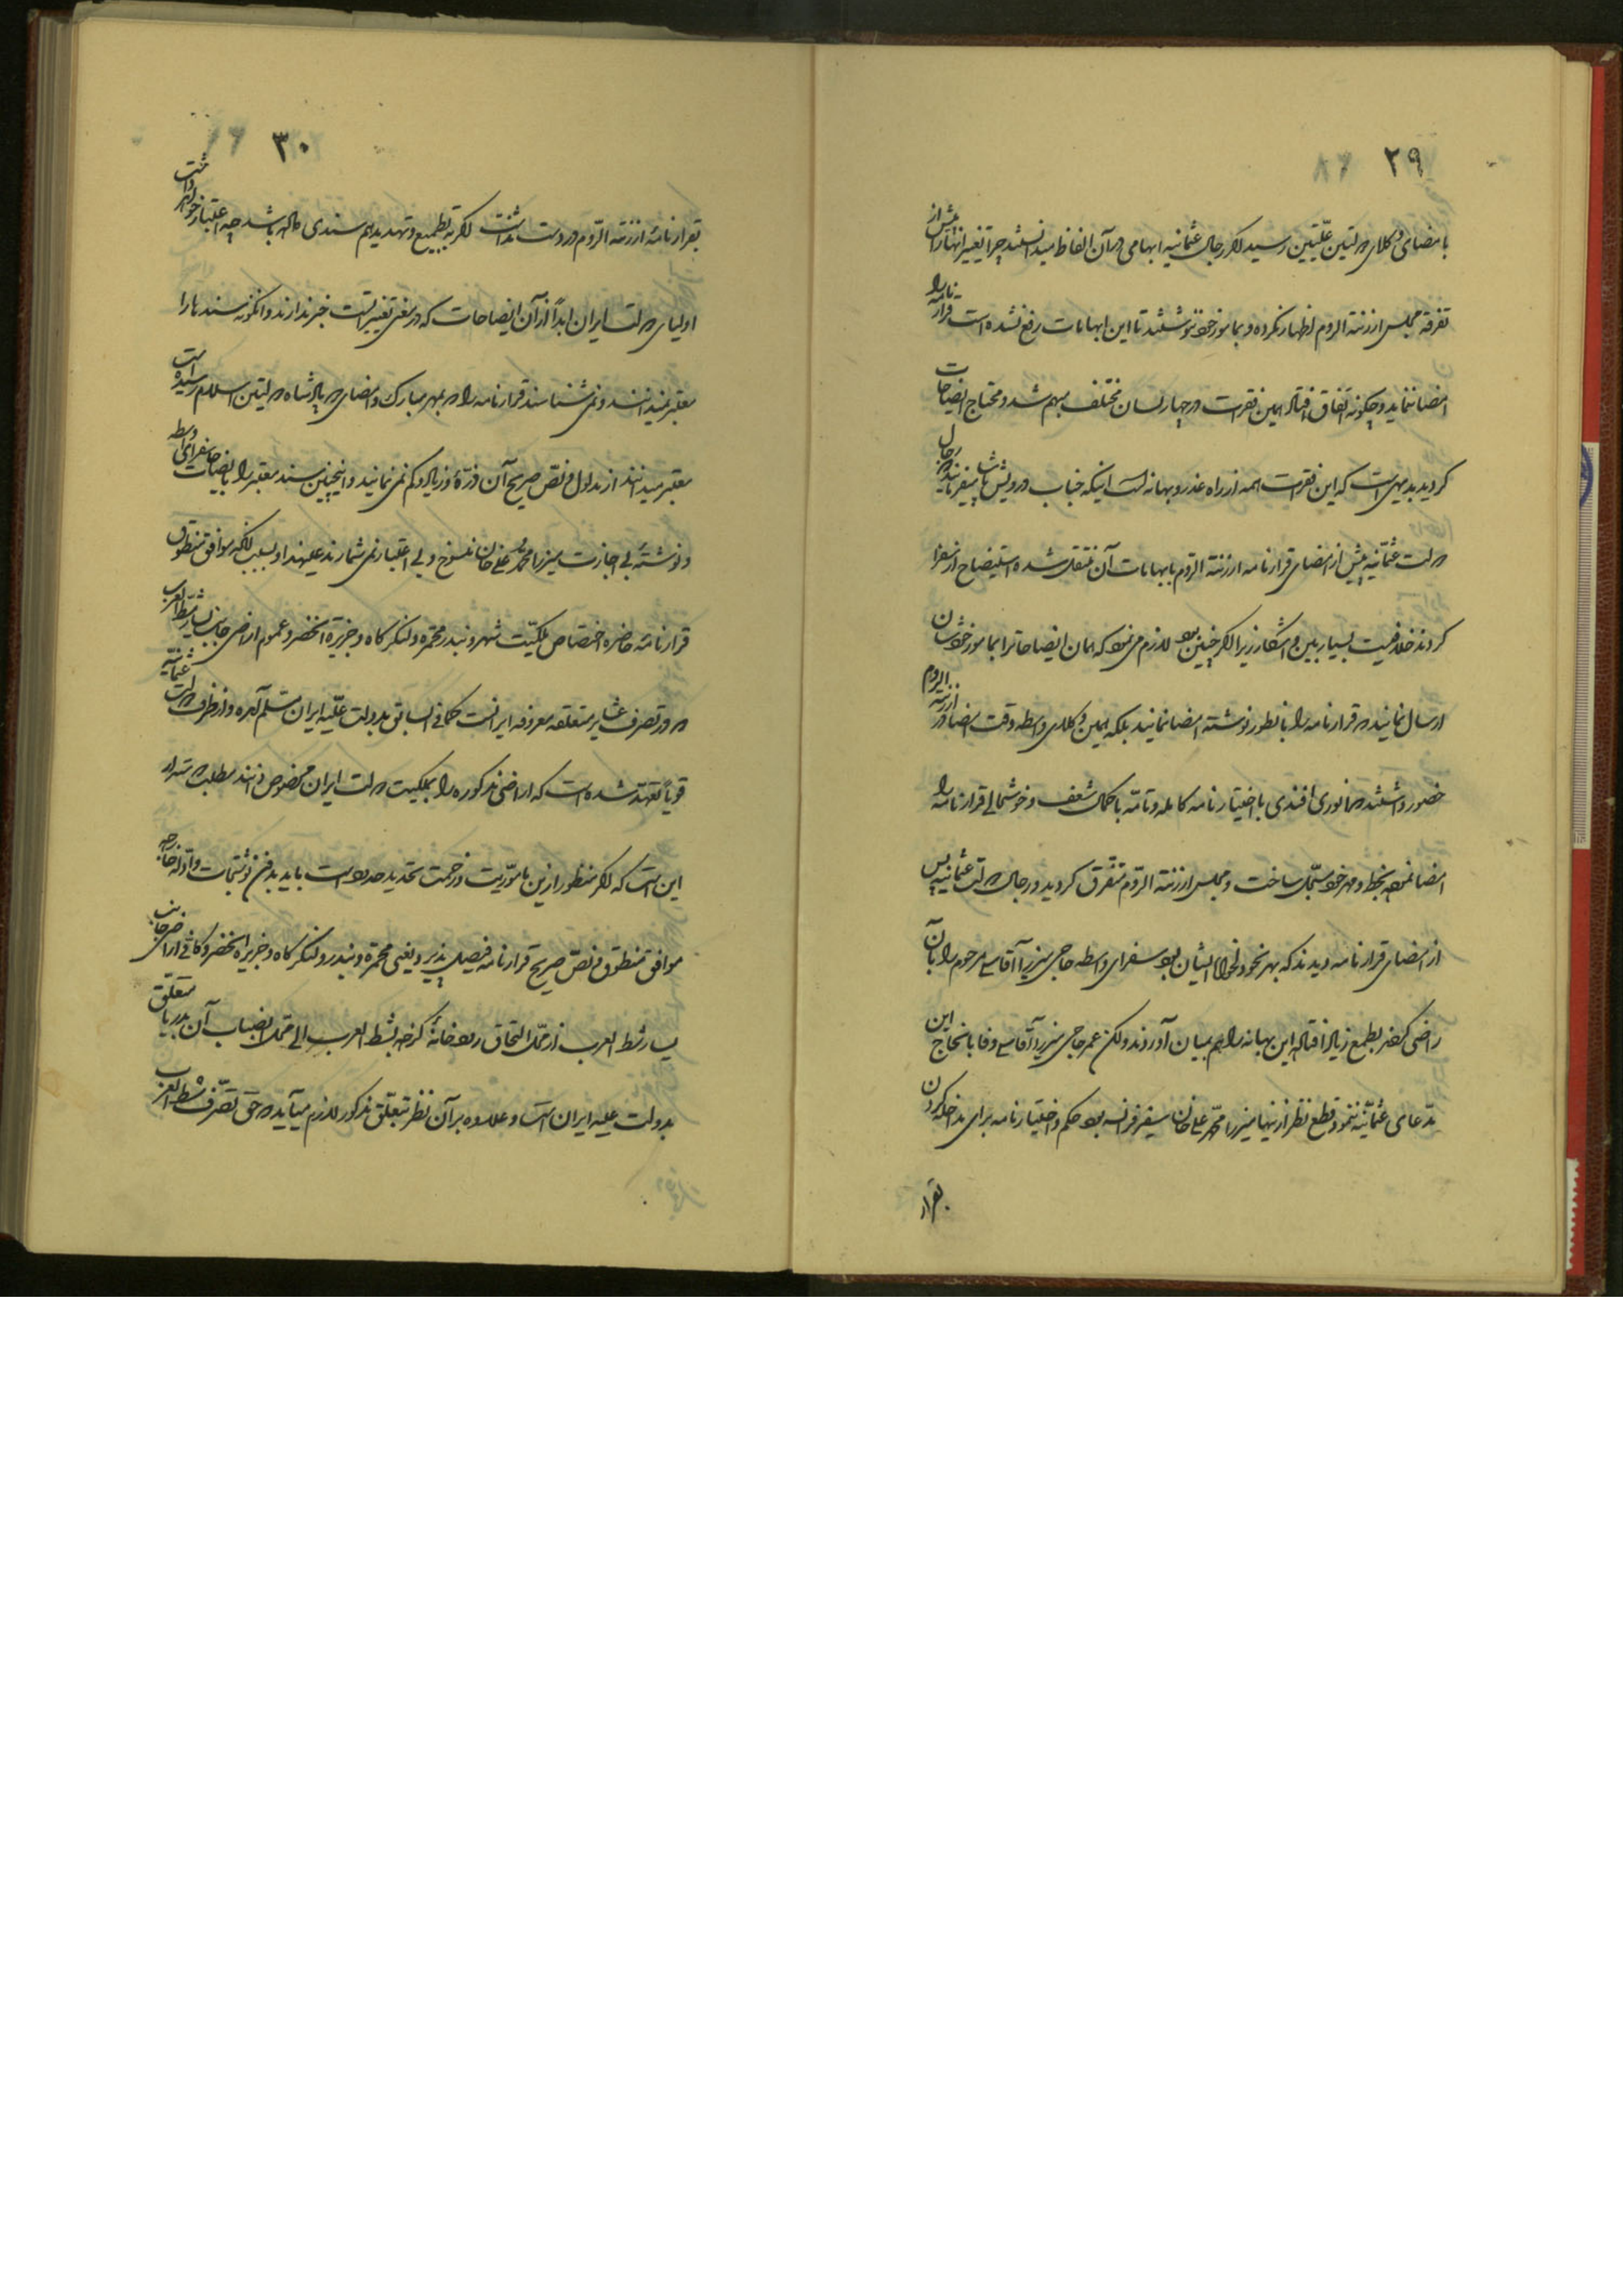 ۲۹
بامضای وکلای دولتین علیتین رسید اگر رجال عثمانیه ابهامی در آن الفاظ میدانستند چرا تغییر آنها را پیش از
تفرقه مجلس ارزنة الروم اظهار نکرده و بمامور خود ننوشتند تا این ابهامات رفع نشده است قرارنامه را
امضا ننماید و چگونه اتفاق افتاد همین فقرات در چهار لسان مختلف مبهم شد و محتاج ایضاحات
کردید بدیهی است که این فقرات همه از راه عذر و بهانه است اینکه جناب درویش پاشا میفرمایند رجال
دولت عثمانیه پیش از امضای قرارنامه ارزنة الروم بابهامات آن منتقل شده استیضاح از سفرا
کردند خلافیت بسیار بین و آشکار زیرا اگر چنین بود لازم می نمود که همان ایضاحات را بمامور خودشان
ارسال نمایند و قرارنامه را بانطور نوشته امضا نمایند بلکه همین وکلای واسطه وقت امضا در ارزنة الروم
حضور داشتند و انوری افندی با اختیارنامه کامله و تامه با کمال شعف و خوشحالی قرارنامه را
امضا نموده بخط و مهر خود مسجل ساخت و مجلس ارزنة الروم متفرق کردید و رجال دولت عثمانیه پس
از امضای قرارنامه دیدند که بهر نحو دلخواه ایشان بود سفرای واسطه حاجی میرزا آقاسی مرحوم را بآن
راضی کردند بطمع زیاد افتاده این بهانه را هم بمیان آوردند ولکن عمر حاجی میرزا آقاسی وفا بانجاح این
مدعای عثمانیه ننمود و قطع نظر از اینها میرزا محمد علی خان سفیر فرانسه بود حکم و اختیارنامه برای مداخله کردن
بقرار
۳۰
بقرارنامهٔ ارزنة الروم در دست نداشت اگر به تطمیع و تهدید هم سندی داده باشد چه اعتبار خواهد داشت
اولیای دولت ایران ابداً از آن ایضاحات که در معنی تغییر است خبر ندارند و انگونه سندها را
معتبر نمیدانند و نمی شناسند قرارنامه را که بمهر مبارک و امضای دو پادشاه دولتین اسلام رسیده است
معتبر میدانند از مدلول و نص صریح آن ذرهٔ زیاد و کم نمی نمایند و اینچنین سند معتبر را بایضاحات سفرای واسطه
و نوشتهٔ بی اجازت میرزا محمد علی خان منسوخ و بی اعتبار نمی شمارند علیهذا و بسبب آنکه موافق منطوق
قرارنامهٔ حاضره اختصاص ملکیت شهر و بندر محمره و لنگرگاه و جزیرة الخضر و عموم اراضی جانب یسار شط العرب
که در تصرف عشایر متعلقه معروفه ایرانست کما فی السابق بدولت علیه ایران مسلم آمده و از طرف دولت عثمانیه
قویاً تعهد شده است که اراضی مذکوره را بملکیت دولت ایران مخصوص دانند مطلب دوستدار
این است که اگر منظور از این ماموریت و زحمت تحدید حدود است باید بدون نوشتجات و ادلهٔ خارجه
موافق منطوق و نص صریح قرارنامه فیصل پذیرد یعنی محمره و بندر و لنگرگاه و جزیره الخضر و کافهٔ اراضی جانب
یسار شط العرب از محل التحاق رودخانهٔ کرخه بشط العرب الی محل انصباب آن بدریا متعلق
بدولت علیه ایران است و علاوه بر آن نظر بتعلق مذکور لازم میآید که حق تصرف شط العرب